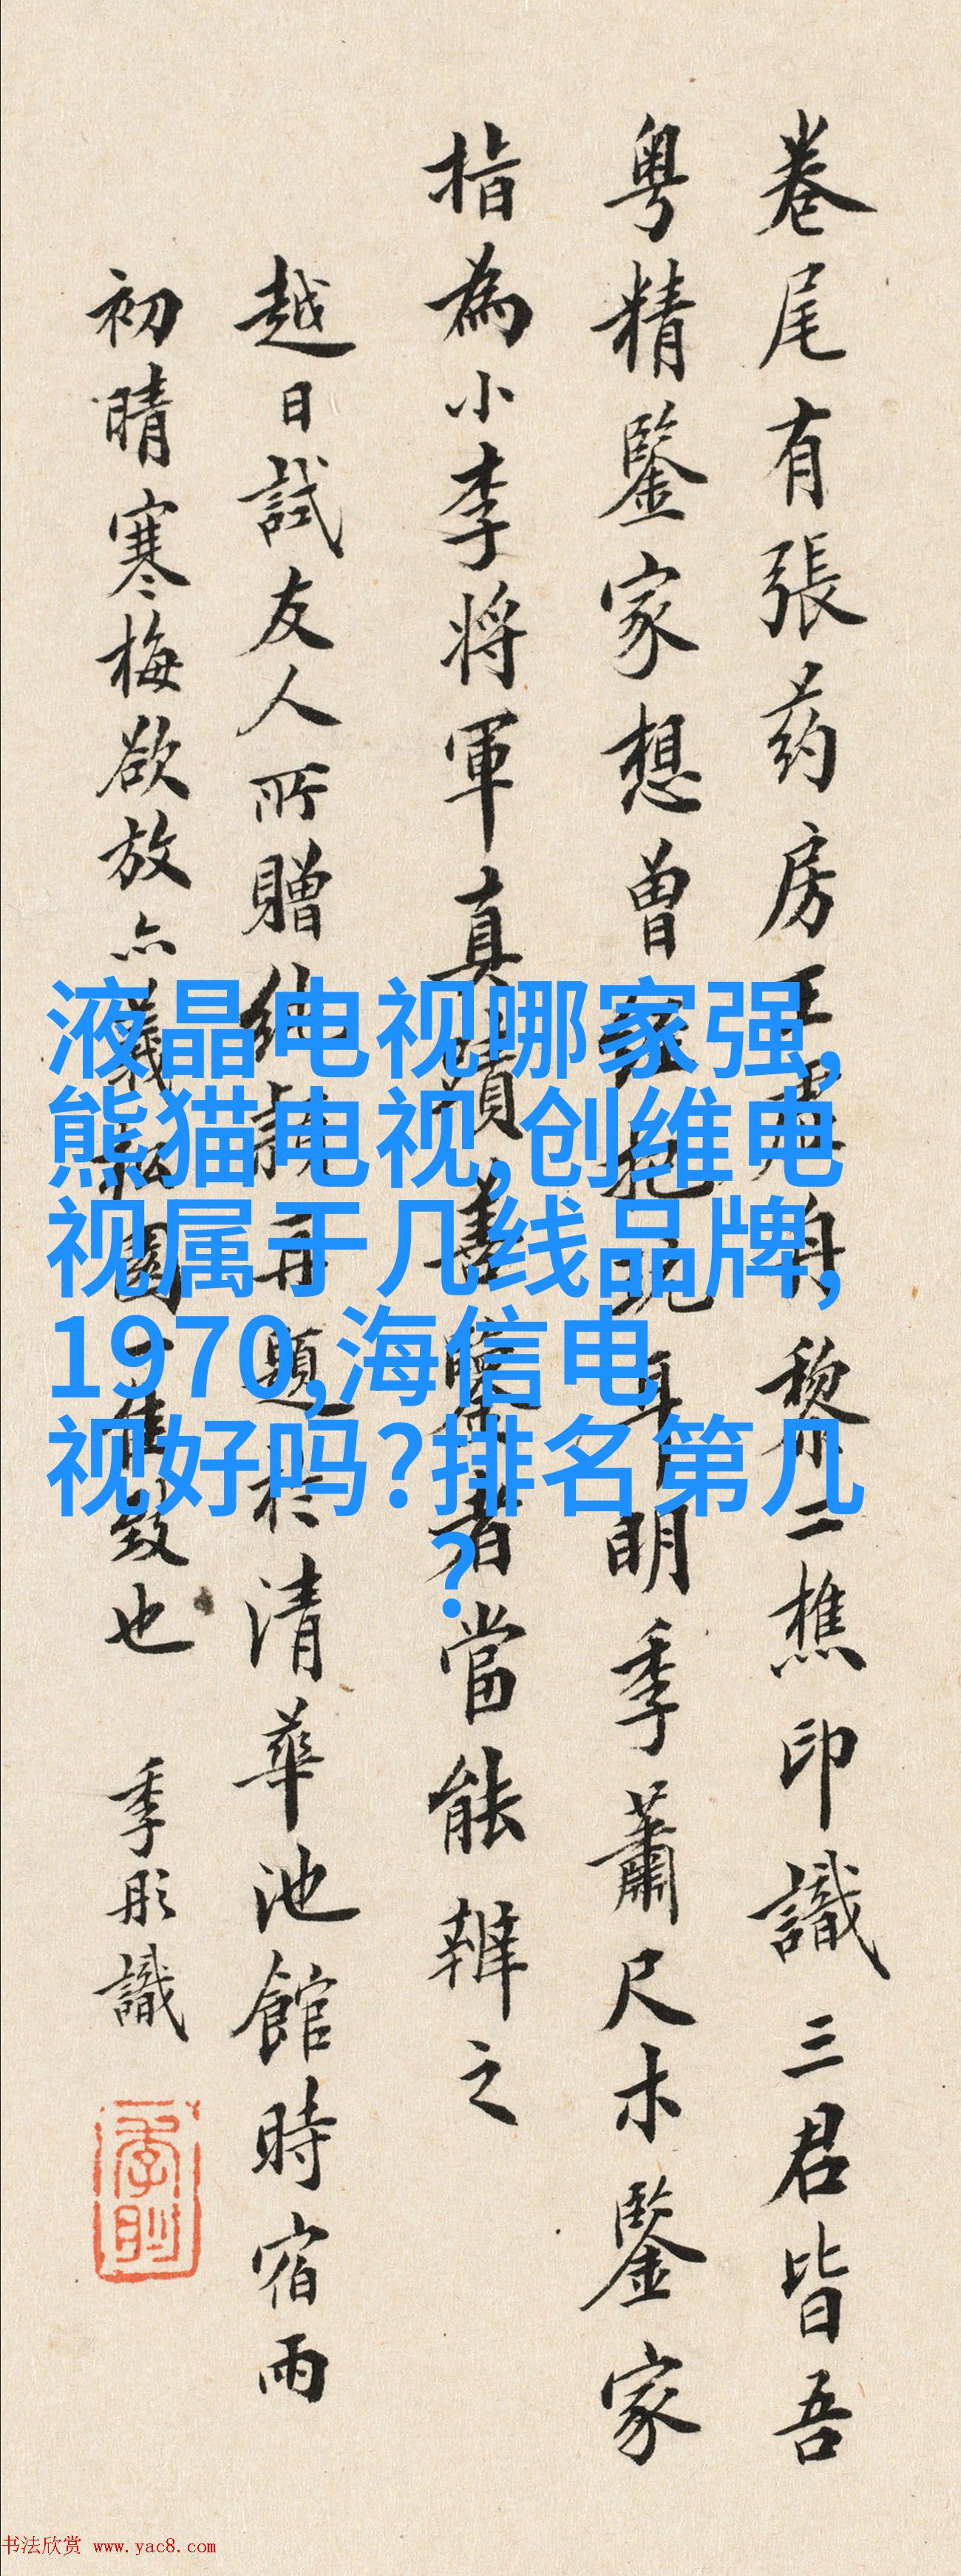 卷尾有張药房王
黎二樵印識三君皆吾
粤精鑒家想曾
明季蕭尺木鑒家
指為小李將軍真蹟善
者當能辨之
越日試友人所贈
再題於清華池館時宿雨
初晴寒梅欲放亦
園一佳致也 季彤識
液晶电视哪家强,
熊猫电视,创维电
视属于几线品牌,
1970,海信电
视好吗?排名第几
?
书法欣赏 www.yac8.com